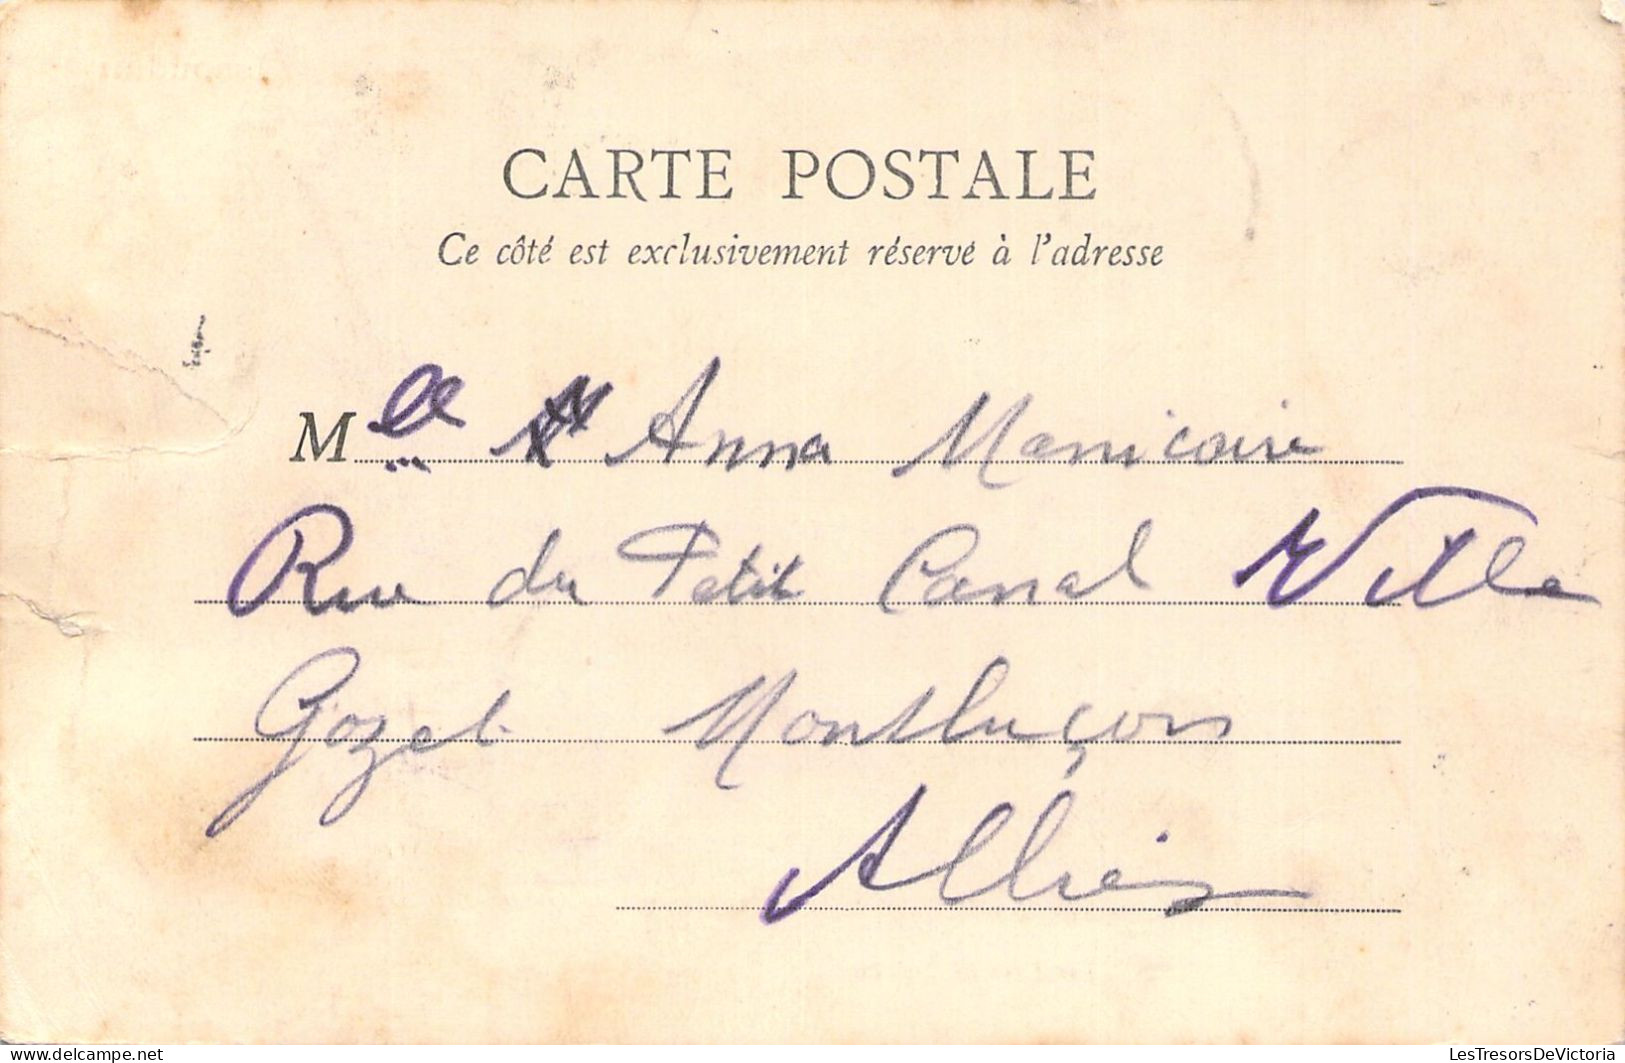 CARTE POSTALE
Ce côté est exclusivement réservé à l'adresse
Mlle Anna Manicaire
Rue du Petit Canal Ville
Gozet Montluçon
Allier
LesTresorsDeVictoria
delcampe.net